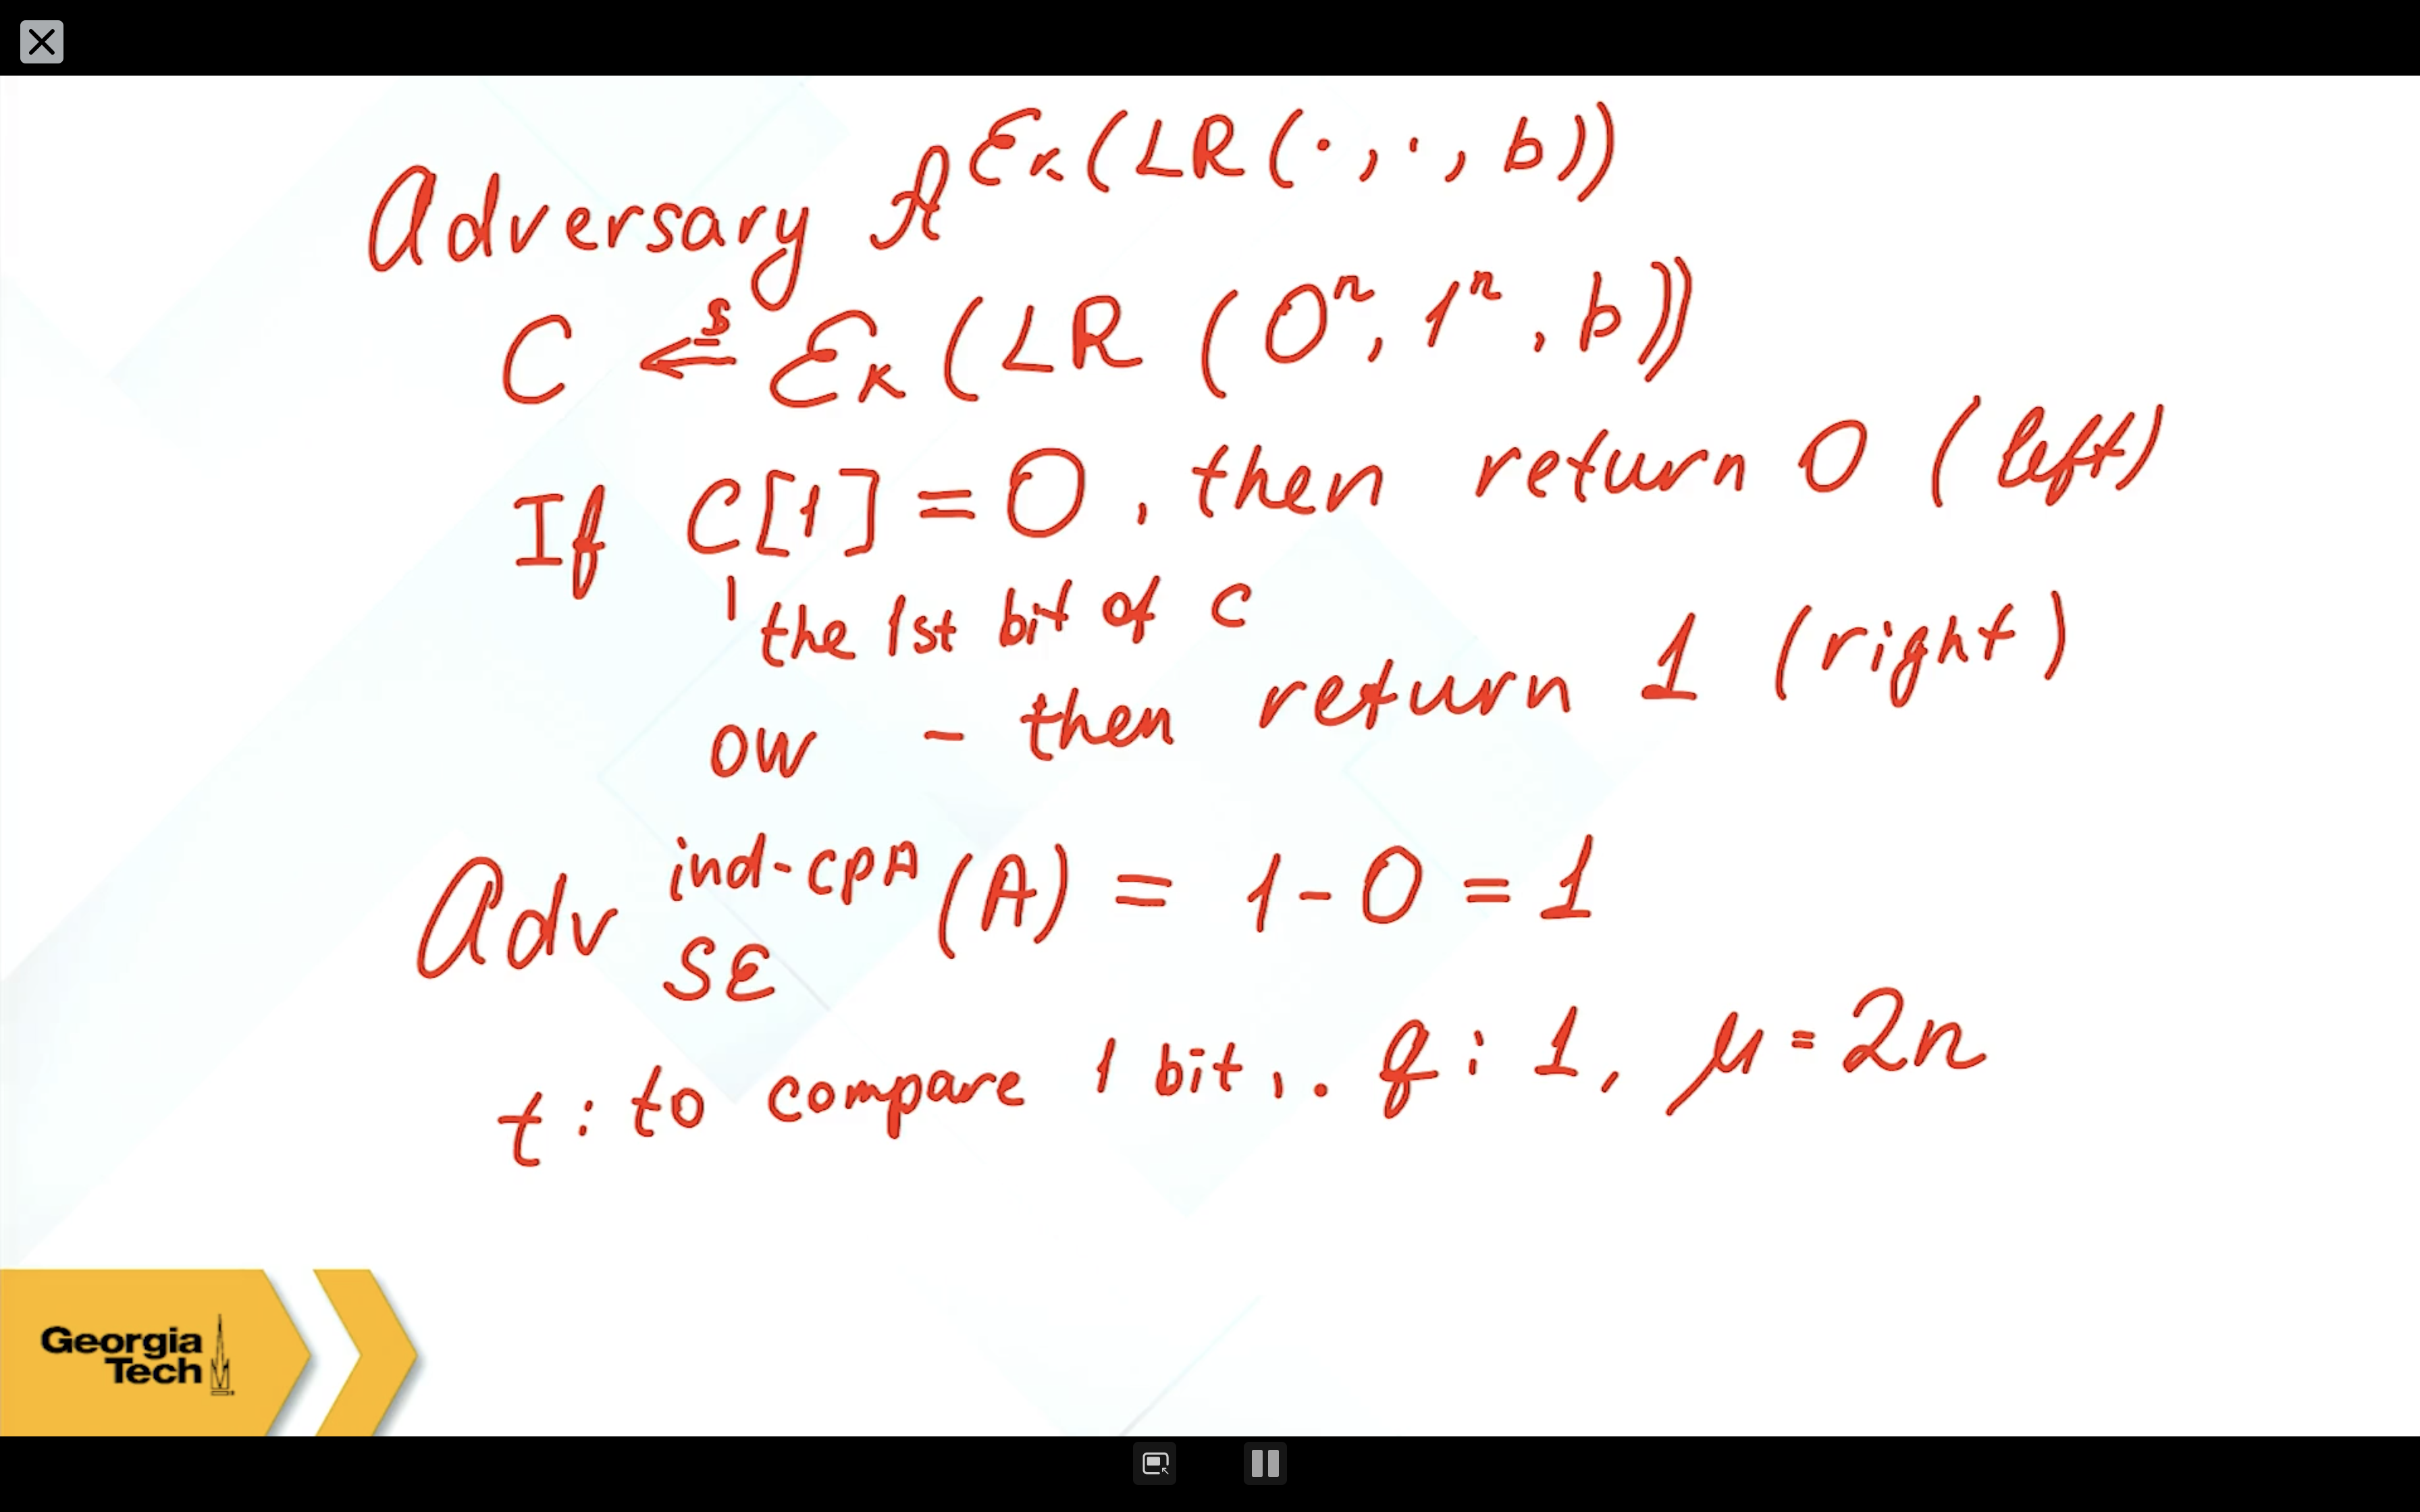 Adversary A^{E_K(LR(·,·,b))}
C ←$ E_K(LR(0^n, 1^n, b))
If C[1] = 0, then return 0 (left)
the 1st bit of C
OW - then return 1 (right)
Adv^{ind-CPA}_{SE} (A) = 1 - 0 = 1
t: to compare 1 bit,. q: 1, μ = 2n
Georgia
Tech